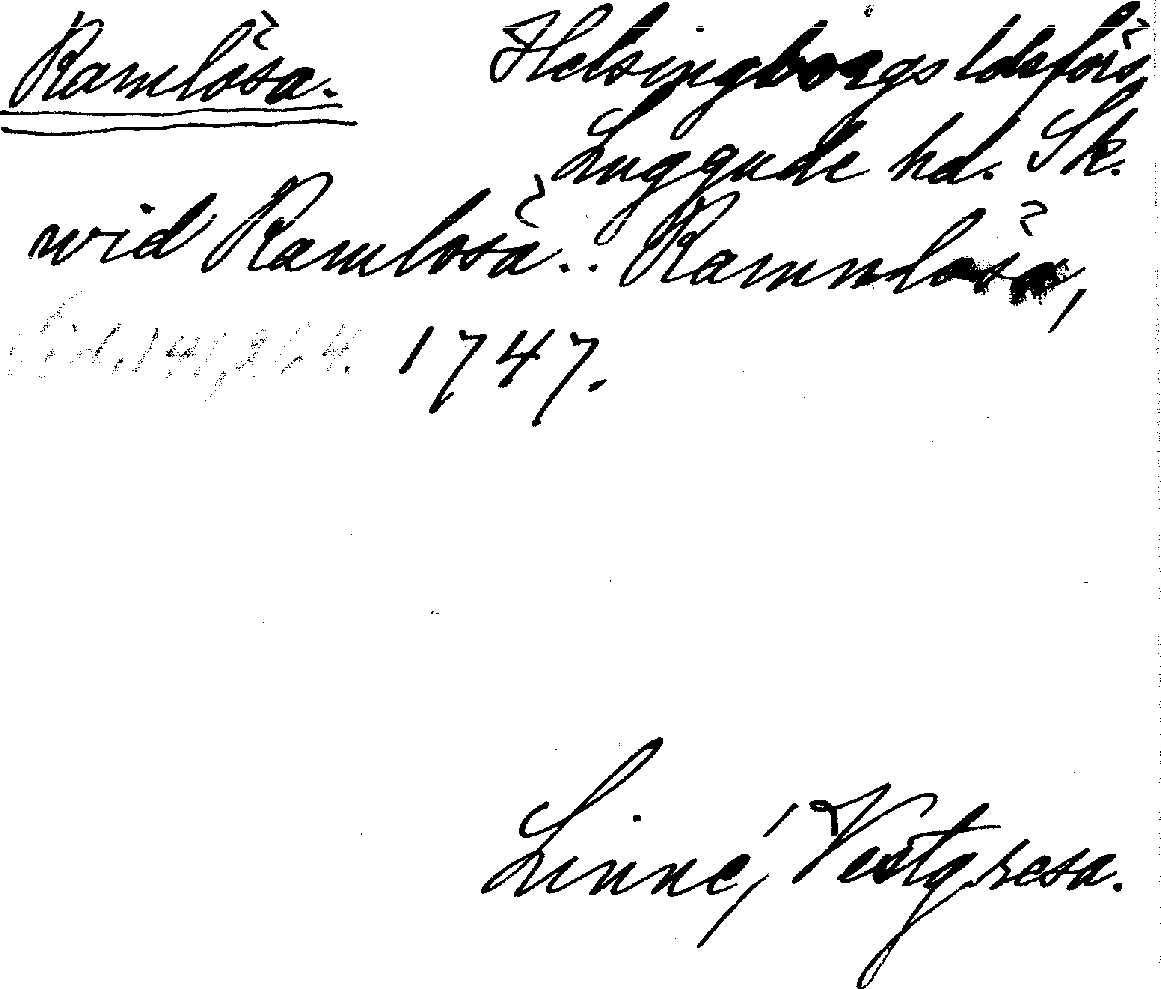 Ramlösa. Helsingborgs ldsförs.
Luggude hd. Sk.
wid Ramlösa.. Rammlösa,
1747.
Linné, Vestg. resa.